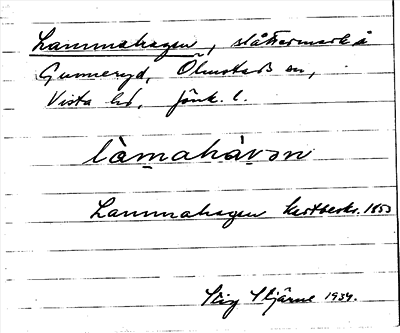 Lammahagen, slåttermark å
Gunneryd, Ölmstads sn,
Vista hd, Jönk. l.
làmahàvən
Lammahagen kartbeskr. 1853
Stig Stjärne 1934.